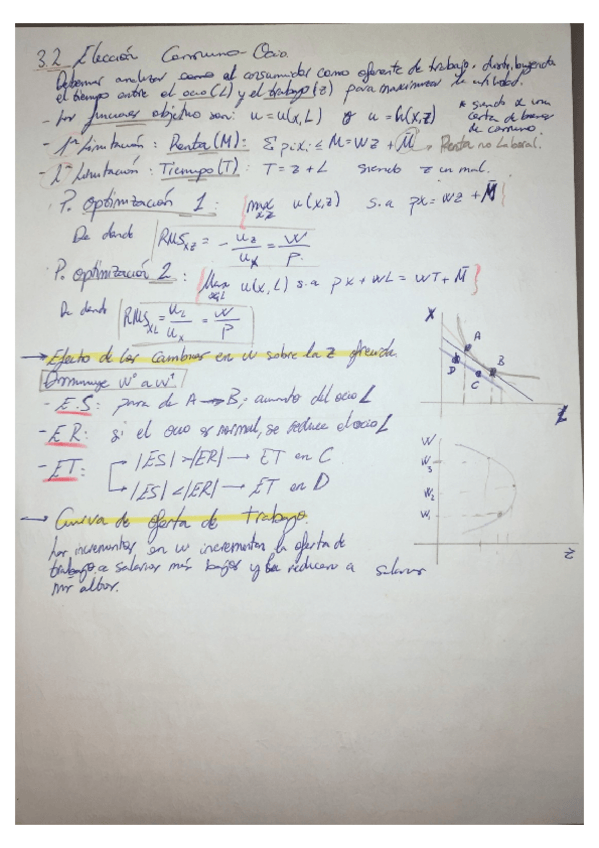 3.2 Elección Consumo-Ocio.
Debemos analizar como el consumidor como oferente de trabajo, distribuyendo
el tiempo entre el ocio (L) y el trabajo (z) para maximizar la utilidad.
- Las funciones objetivo son: u = u(x,L) o u = h(x,z)
* siendo x una
cesta de bienes
de consumo.
- 1ª Limitación: Renta (M): Σ pi xi ≤ M = WZ + M̄ → Renta no laboral.
- 2ª Limitación: Tiempo (T): T = z + L siendo z
P. Optimización 1: max x,z u(x,z) s.a px = wz + M̄
De donde RMS xz = - uz/ux = W/P
P. Optimización 2: Max x,L u(x,L) s.a px + WL = WT + M̄
De donde RMS xL = uL/ux = W/P
→ Efecto de los cambios en w sobre la z ofrecida.
Disminuye W⁰ a W¹
- E.S: pasa de A → B; aumento del ocio L
- ER: si el ocio es normal, se reduce el ocio L
- ET: |ES| > |ER| → ET en C
|ES| < |ER| → ET en D
X
A
B
D
C
L
→ Curva de oferta de trabajo.
Los incrementos en w incrementan la oferta de
trabajo a salarios más bajos y la reducen a salarios
más altos.
W
W3
W2
W1
z